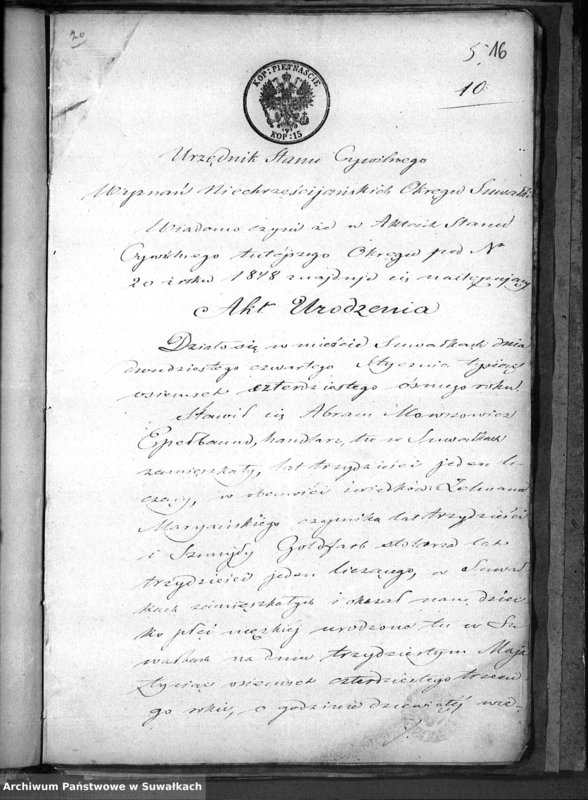 20
5 16
10
KOP: PIĘTNAŚCIE
KOP: 15
Urzędnik Stanu Cywilnego
Wyznań Niechrześcijańskich Okręgu Suwałki
Wiadomo czyni że w Aktach Stanu
Cywilnego tutejszego Okręgu pod Nr
20 i roku 1848 znajduje się następujący
Akt Urodzenia
Działo się w mieście Suwałkach dnia
dwudziestego czwartego Stycznia tysiąc
osiemset czterdziestego ósmego roku
Stawił się Abram Mowszowicz
Epelbaum, handlarz, tu w Suwałkach
zamieszkały, lat trzydzieści jeden li-
czący, w obecności świadków Zelmana
Maryańskiego czynnika lat trzydzieści
i Szmujły Goldfarb stolarza lat
trzydzieści jeden liczącego, w Suwał-
kach zamieszkałych i okazał nam dziec-
ko płci męzkiej urodzone tu w Su-
wałkach na dniu trzydziestym Maja
tysiąc osiemset czterdziestego trzecie-
go roku, o godzinie dziewiątej wie-
Archiwum Państwowe w Suwałkach